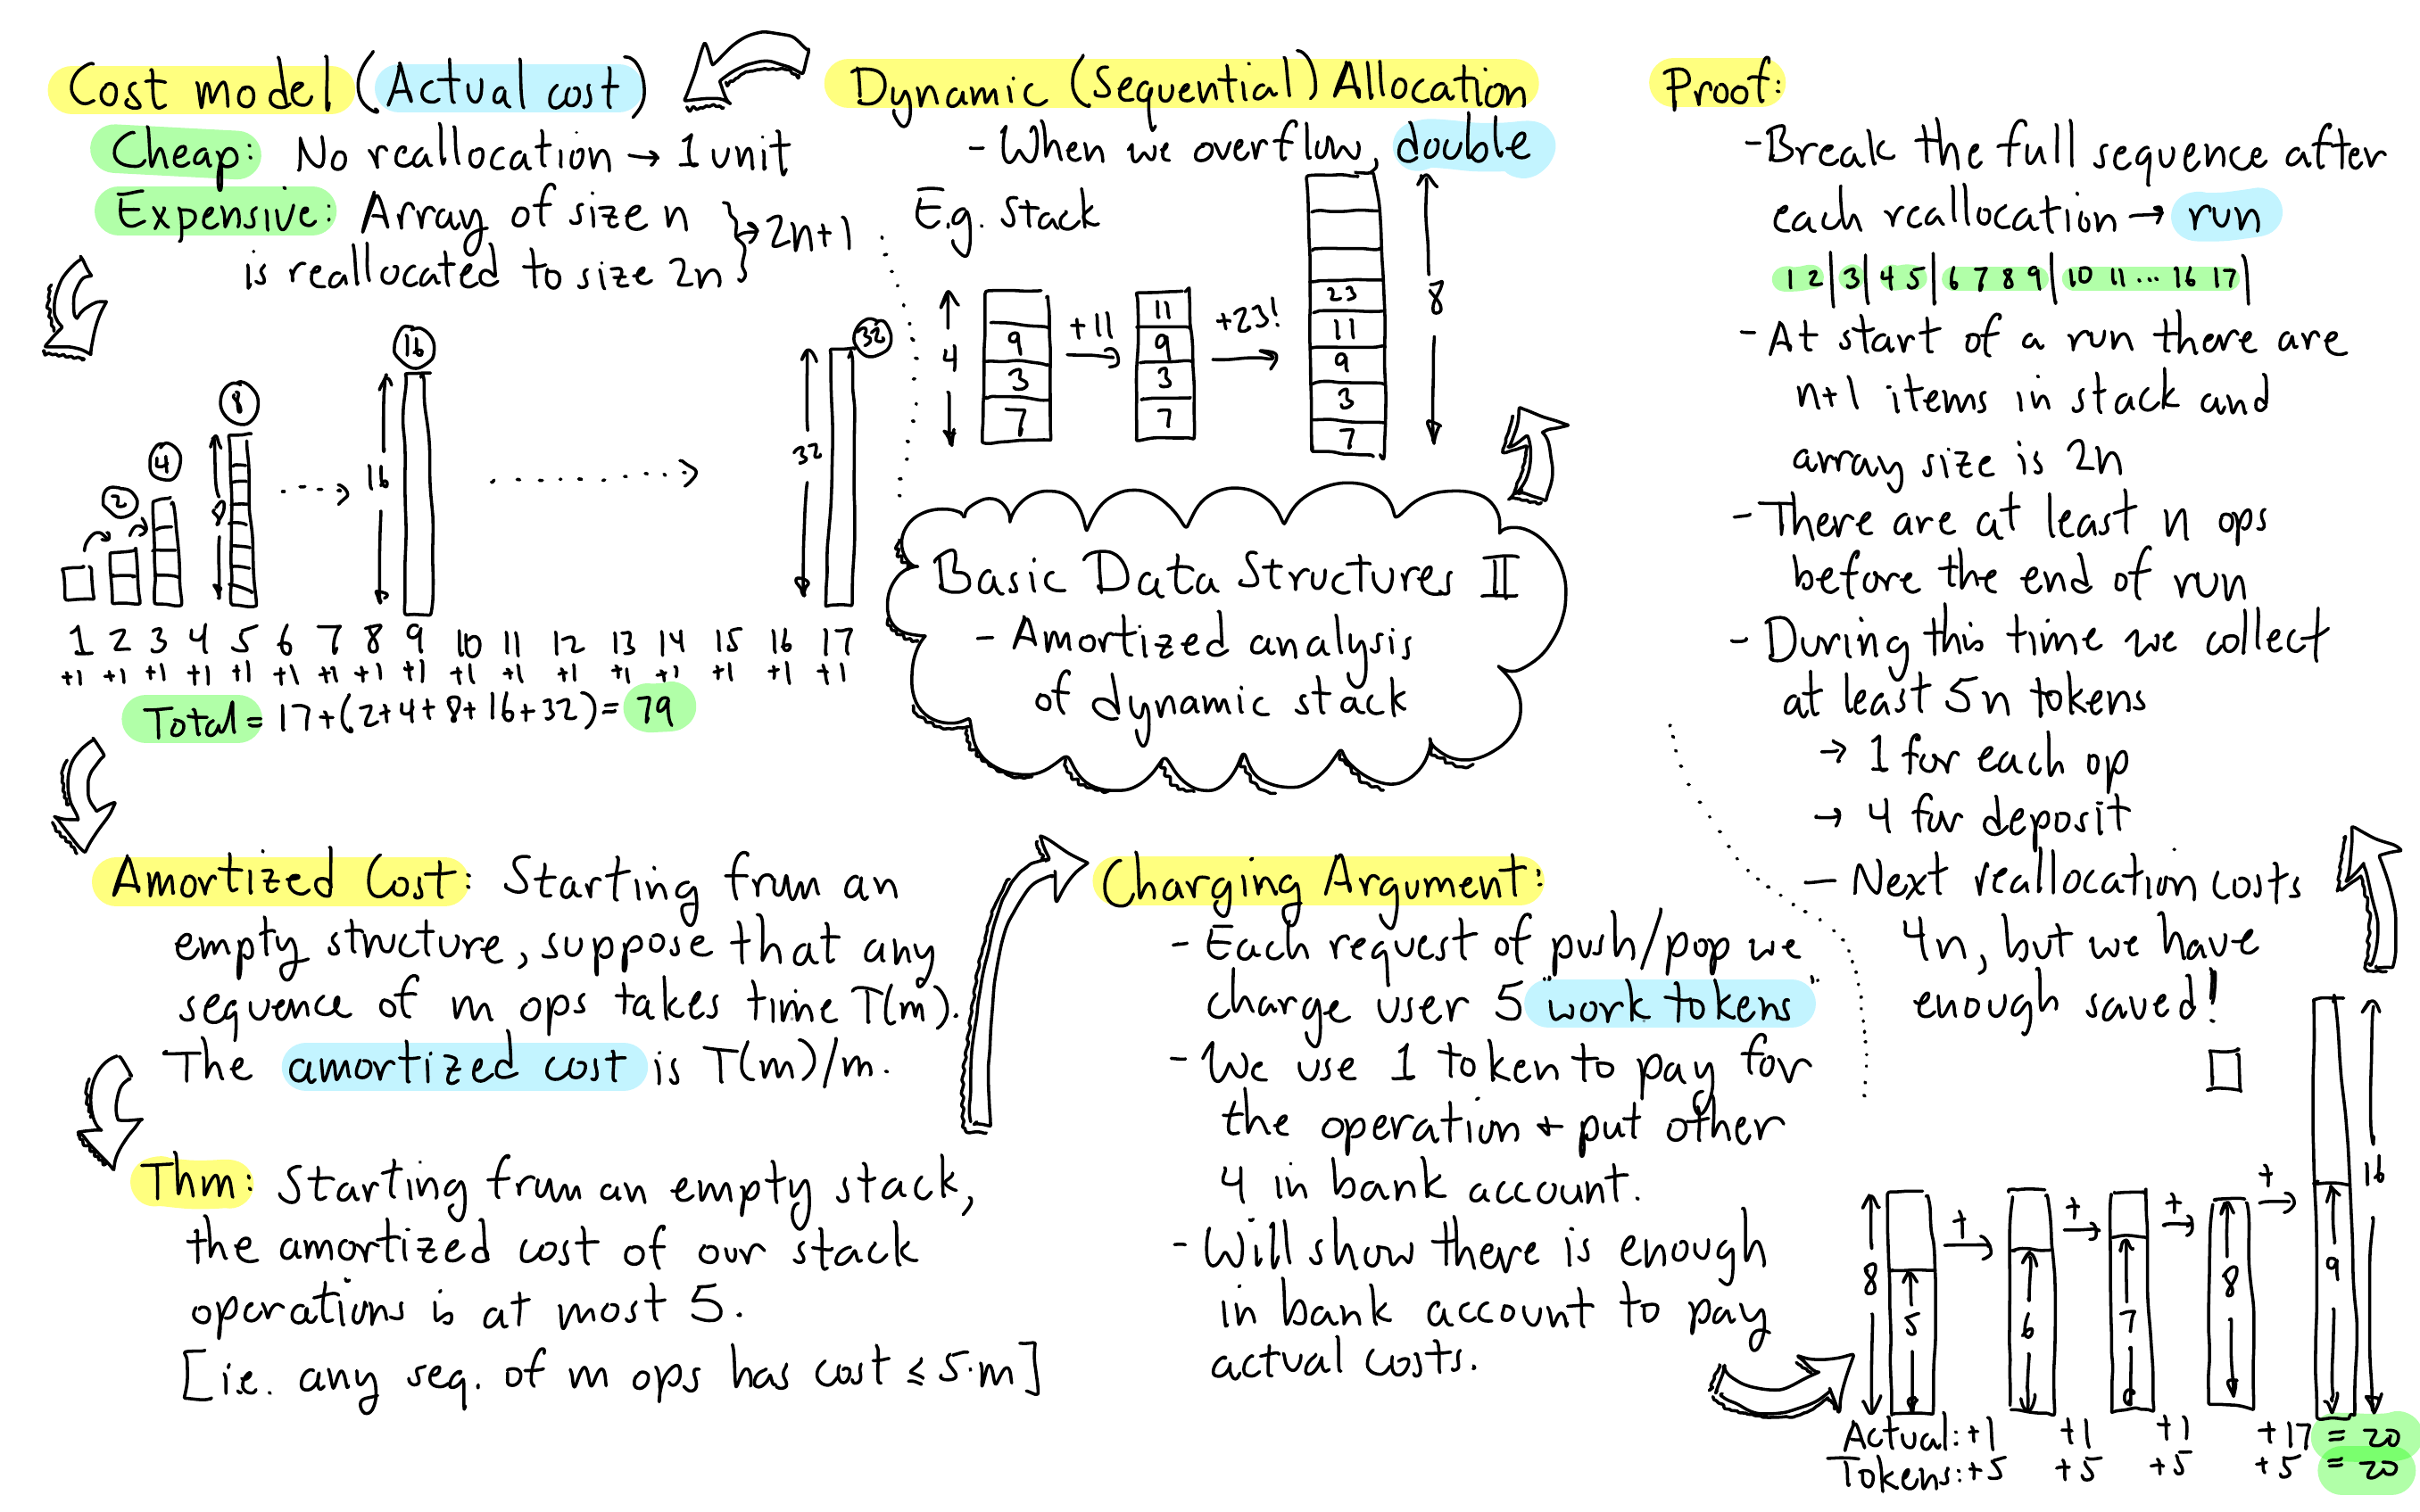 Basic Data Structures II
- Amortized analysis
of dynamic stack
Dynamic (Sequential) Allocation
- When we overflow, double
E.g. Stack
4
9
3
7
+11
11
9
3
7
+23!
23
11
9
3
7
8
Cost model (Actual cost)
Cheap: No reallocation → 1 unit
Expensive: Array of size n
is reallocated to size 2n
→ 2n+1
2
4
8
8
16
16
32
32
1 2 3 4 5 6 7 8 9 10 11 12 13 14 15 16 17
+1 +1 +1 +1 +1 +1 +1 +1 +1 +1 +1 +1 +1 +1 +1 +1 +1
Total = 17+(2+4+8+16+32) = 79
Amortized Cost: Starting from an
empty structure, suppose that any
sequence of m ops takes time T(m).
The amortized cost is T(m)/m.
Thm: Starting from an empty stack,
the amortized cost of our stack
operations is at most 5.
[i.e. any seq. of m ops has cost ≤ 5·m]
Charging Argument:
- Each request of push/pop we
charge user 5 "work tokens"
- We use 1 token to pay for
the operation + put other
4 in bank account.
- Will show there is enough
in bank account to pay
actual costs.
8
5
+ →
6
+ →
7
+ →
8
+ →
9
16
Actual: +1 +1 +1 +17 = 20
Tokens: +5 +5 +5 +5 = 20
Proof:
- Break the full sequence after
each reallocation → run
1 2 | 3 | 4 5 | 6 7 8 9 | 10 11 ... 16 17 |
- At start of a run there are
n+1 items in stack and
array size is 2n
- There are at least n ops
before the end of run
- During this time we collect
at least 5n tokens
→ 1 for each op
→ 4 for deposit
- Next reallocation costs
4n, but we have
enough saved!